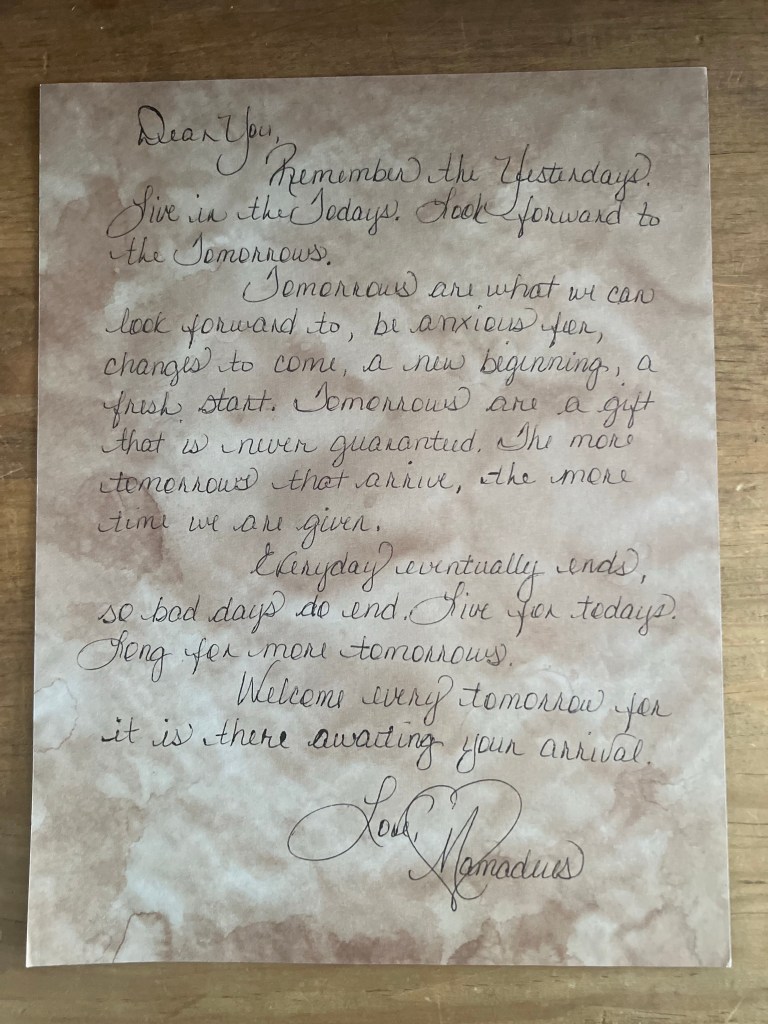 Dear You,
Remember the Yesterdays.
Live in the Todays. Look forward to
the Tomorrows.
Tomorrows are what we can
look forward to, be anxious for,
changes to come, a new beginning, a
fresh start. Tomorrows are a gift
that is never guaranteed. The more
tomorrows that arrive, the more
time we are given.
Everyday eventually ends,
so bad days do end. Live for todays.
Long for more tomorrows.
Welcome every tomorrow for
it is there awaiting your arrival.
Love,